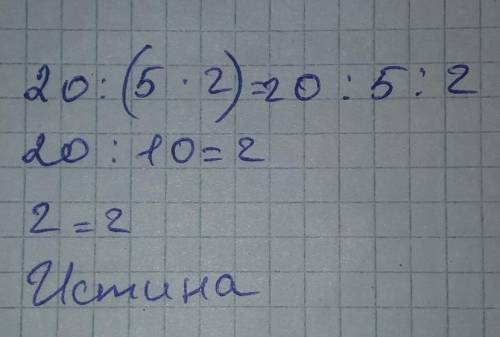 20:(5·2)=20:5:2
20:10=2
2=2
Истина